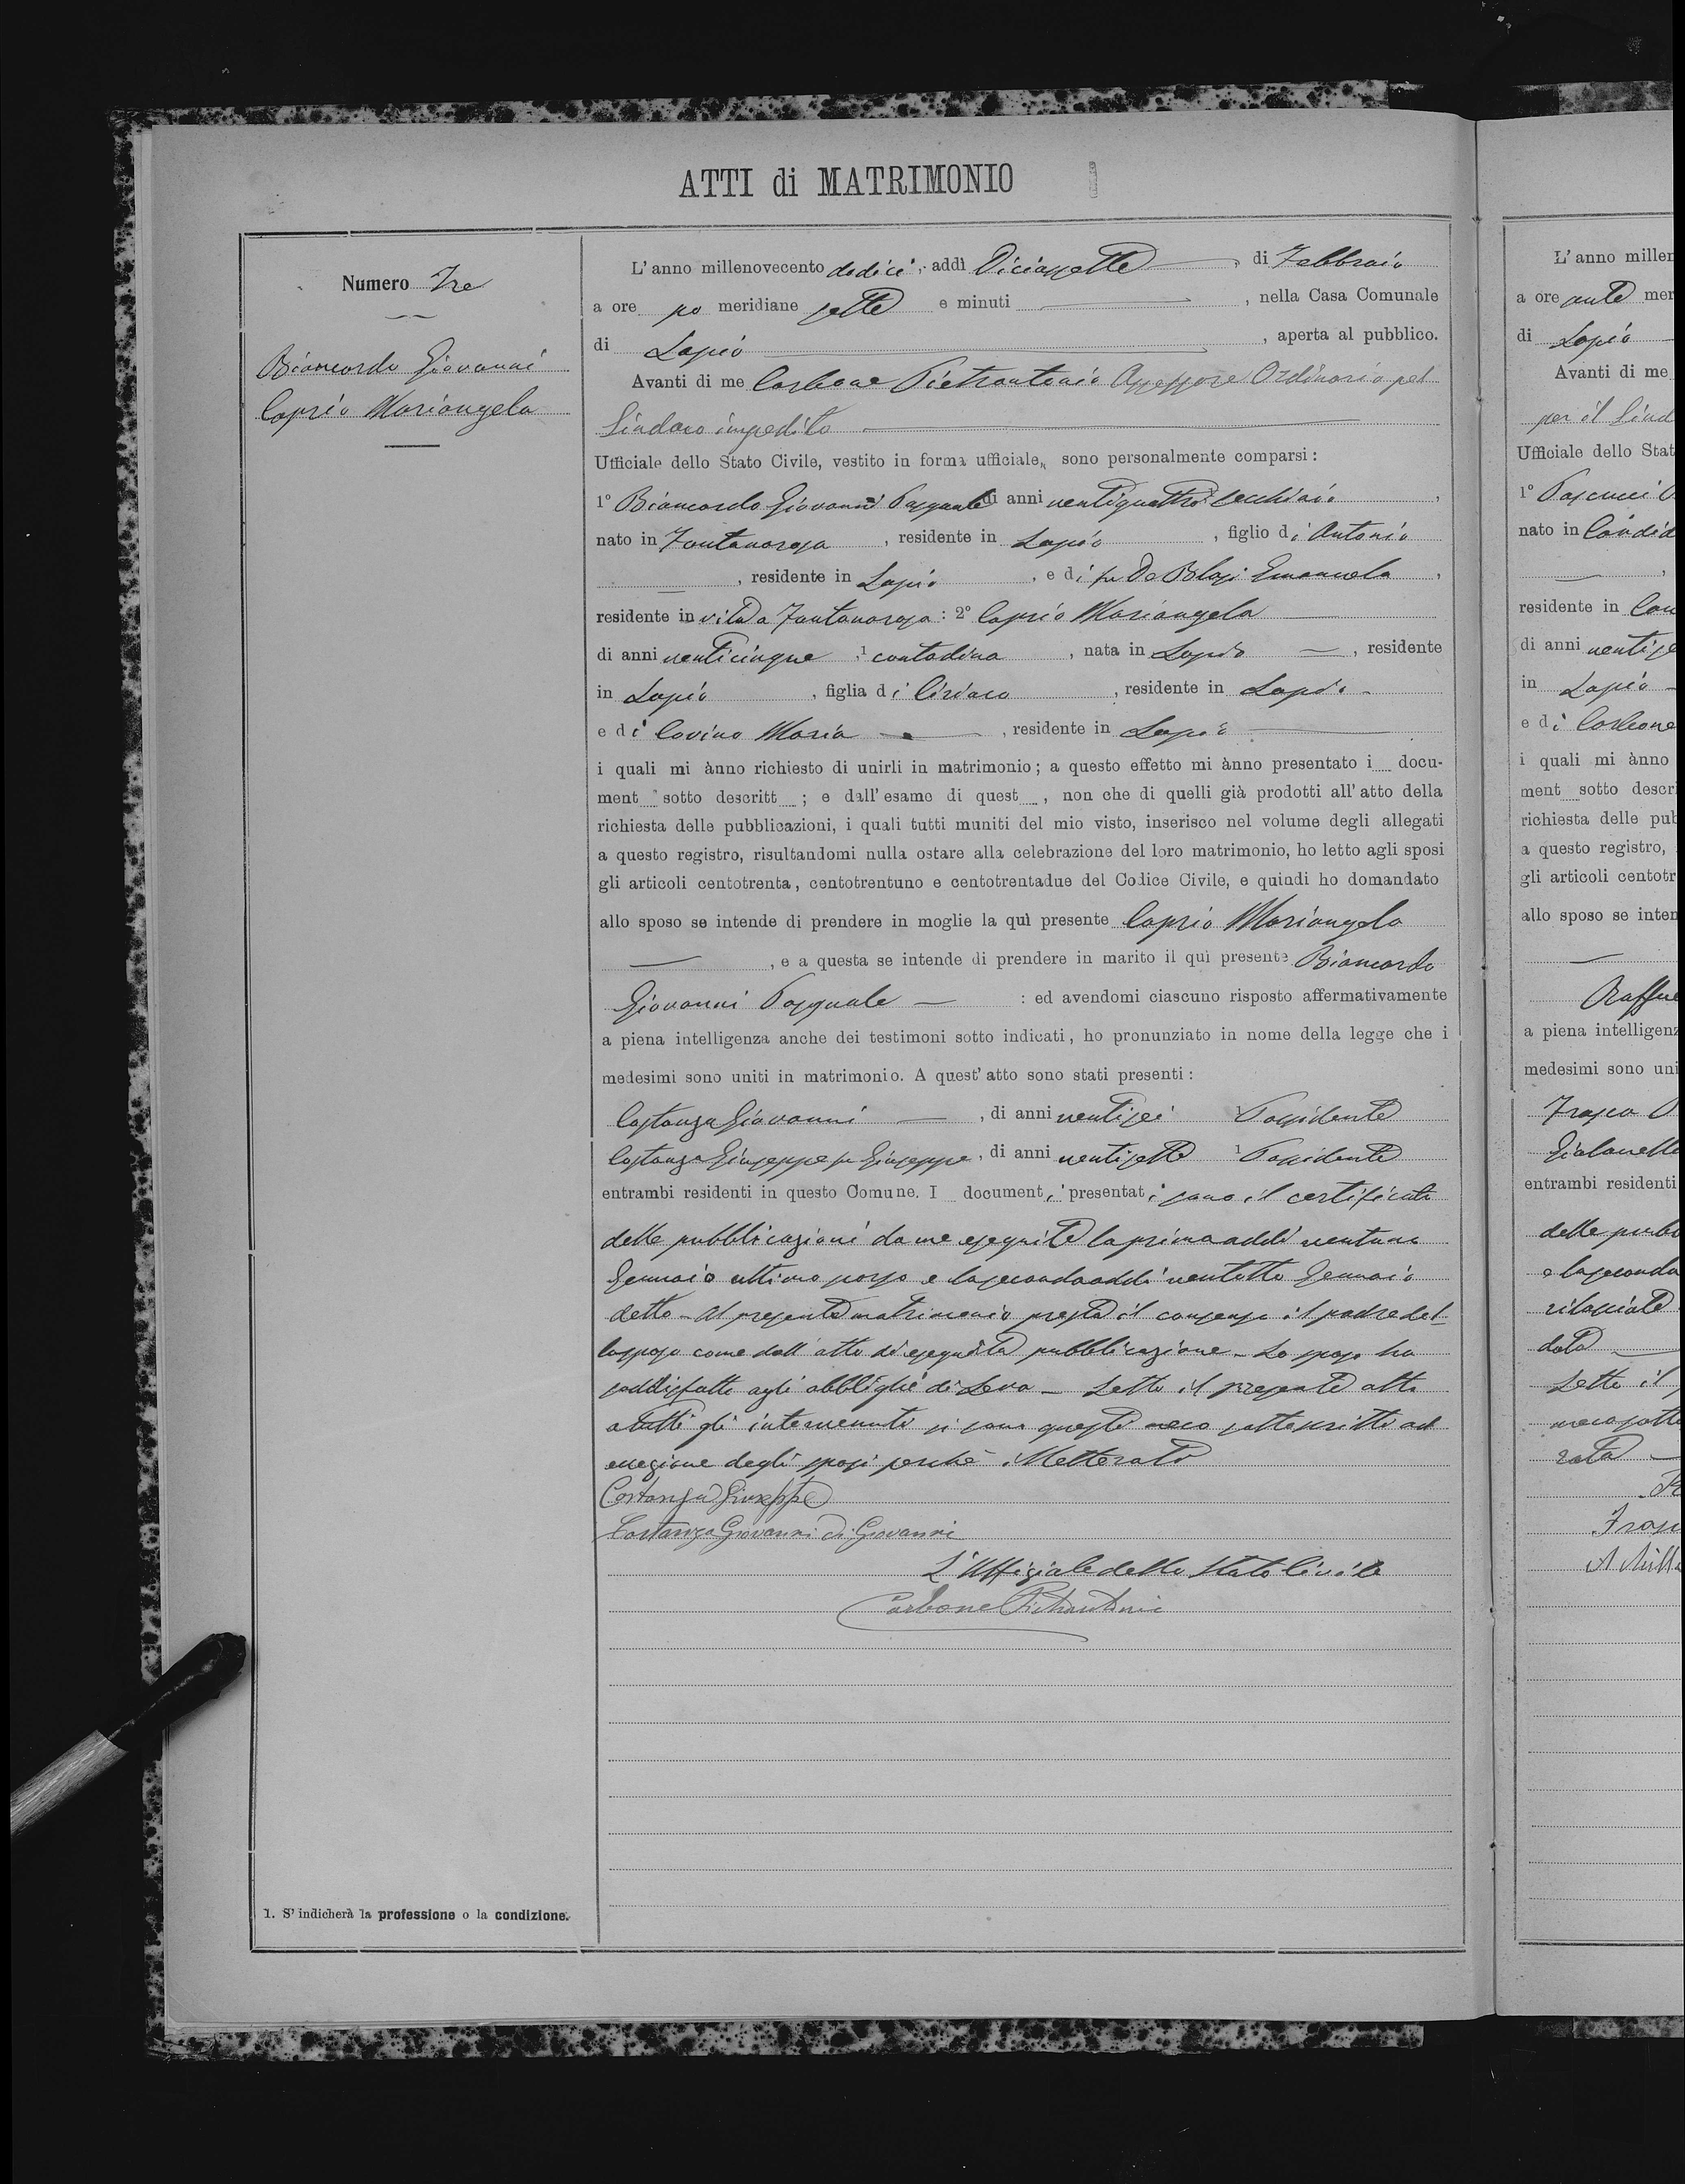 ATTI di MATRIMONIO
Numero Tre
Biancardo Giovanni
Caprio Mariangela
L' anno millenovecento dodici, addì Diciassette, di Febbraio
a ore po meridiane sette e minuti, nella Casa Comunale
di Lapio, aperta al pubblico.
Avanti di me Carbone Pietrantonio Assessore Ordinario pel
Sindaco impedito
Ufficiale dello Stato Civile, vestito in forma ufficiale, sono personalmente comparsi:
1º Biancardo Giovanni Pasquale di anni ventiquattro secchiaio,
nato in Fontanarosa, residente in Lapio, figlio di Antonio
, residente in Lapio, e di fu De Blasi Emanuela,
residente in vita a Fontanarosa: 2º Caprio Mariangela
di anni venticinque, ¹ contadina, nata in Lapio, residente
in Lapio, figlia di Ciriaco, residente in Lapio
e di Covino Maria, residente in Lapio
i quali mi ànno richiesto di unirli in matrimonio; a questo effetto mi ànno presentato i docu-
ment sotto descritt; e dall' esame di quest, non che di quelli già prodotti all' atto della
richiesta delle pubblicazioni, i quali tutti muniti del mio visto, inserisco nel volume degli allegati
a questo registro, risultandomi nulla ostare alla celebrazione del loro matrimonio, ho letto agli sposi
gli articoli centotrenta, centotrentuno e centotrentadue del Codice Civile, e quindi ho domandato
allo sposo se intende di prendere in moglie la quì presente Caprio Mariangela
, e a questa se intende di prendere in marito il quì presente Biancardo
Giovanni Pasquale: ed avendomi ciascuno risposto affermativamente
a piena intelligenza anche dei testimoni sotto indicati, ho pronunziato in nome della legge che i
medesimi sono uniti in matrimonio. A quest' atto sono stati presenti:
Costanza Giovanni, di anni ventisei ¹ Possidente
Costanza Giuseppe fu Giuseppe, di anni ventisette ¹ Possidente
entrambi residenti in questo Comune. I documenti presentati sono il certificato
delle pubblicazioni da me eseguite la prima addì ventuno
Gennaio ultimo scorso e la seconda addì ventotto Gennaio
detto - Al presente matrimonio presta il consenso il padre del-
lo sposo come dall'atto di eseguita pubblicazione - Lo sposo ha
soddisfatto agli obblighi di Leva - Letto il presente atto
a tutti gli intervenuti si sono questi meco sottoscritti ad
eccezione degli sposi perchè illetterati
Costanza Giuseppe
Costanza Giovanni di Giovanni
L'Uffiziale dello Stato Civile
Carbone Pietrantonio
1. S' indicherà la professione o la condizione.
L' anno millen
a ore ante mer
di Lapio
Avanti di me
per il Sind
Ufficiale dello Stat
1º Pascucci
nato in Candid
residente in Can
di anni ventise
in Lapio
e di Carbone
i quali mi ànno
ment sotto descri
richiesta delle pub
a questo registro,
gli articoli centotr
allo sposo se inten
Raffae
a piena intelligenz
medesimi sono uni
entrambi residenti
delle pubb
e la seconda
rilasciato
Letto il
meco sotto